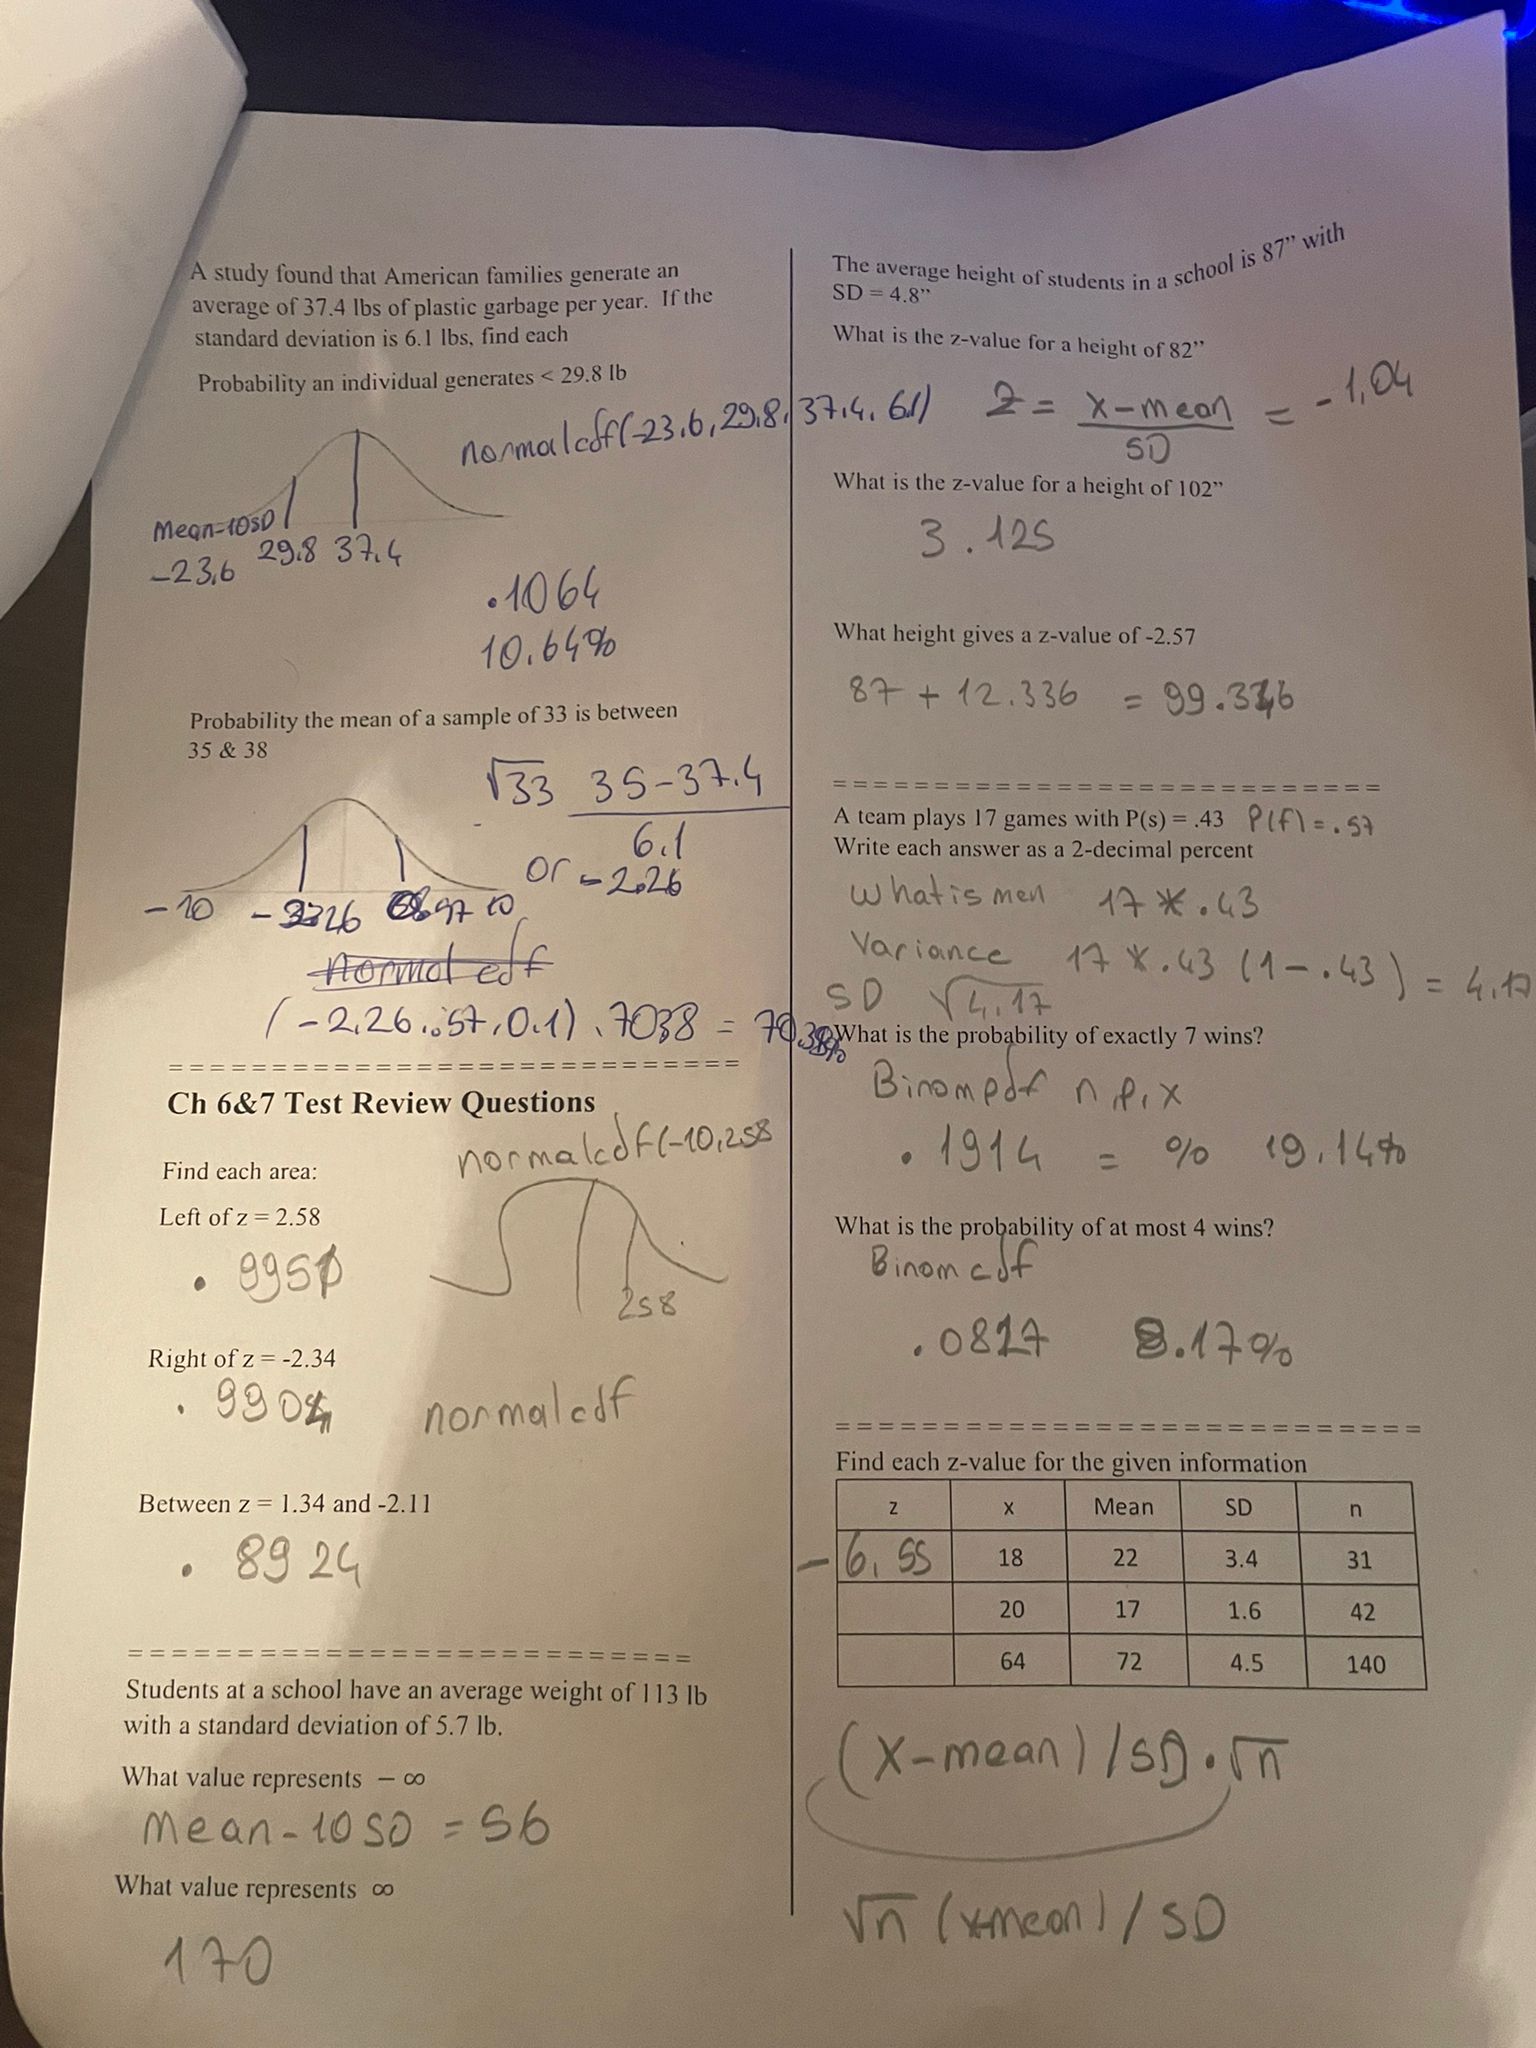 A study found that American families generate an
average of 37.4 lbs of plastic garbage per year. If the
standard deviation is 6.1 lbs, find each
Probability an individual generates < 29.8 lb
normalcdf(-23.6, 29.8, 37.4, 6.1)
Mean-10SD
-23.6 29.8 37.4
.1064
10.64%
Probability the mean of a sample of 33 is between
35 & 38
√33 35-37.4
6.1
or -2.26
-10
10
normal cdf
(-2.26, .57, 0.1) .7038 = 70.38%
===========================
Ch 6&7 Test Review Questions
normalcdf(-10, 258
Find each area:
Left of z = 2.58
.9951
258
Right of z = -2.34
.9904 normalcdf
Between z = 1.34 and -2.11
.8924
===========================
Students at a school have an average weight of 113 lb
with a standard deviation of 5.7 lb.
What value represents – ∞
Mean-10SD = 56
What value represents ∞
170
The average height of students in a school is 87” with
SD = 4.8”
What is the z-value for a height of 82”
Z = x-mean = -1,04
SD
What is the z-value for a height of 102”
3.125
What height gives a z-value of -2.57
87 + 12.336 = 99.336
===========================
A team plays 17 games with P(s) = .43 P(f)=.57
Write each answer as a 2-decimal percent
What is men 17 * .43
Variance 17 * .43 (1-.43) = 4.17
SD √4.17
What is the probability of exactly 7 wins?
Binompdf n,p,x
.1914 = % 19.14%
What is the probability of at most 4 wins?
Binomcdf
.0817 8.17%
===========================
Find each z-value for the given information
z x Mean SD n
-6.55 18 22 3.4 31
20 17 1.6 42
64 72 4.5 140
(x-mean)/SD · √n
√n (x-mean)/SD